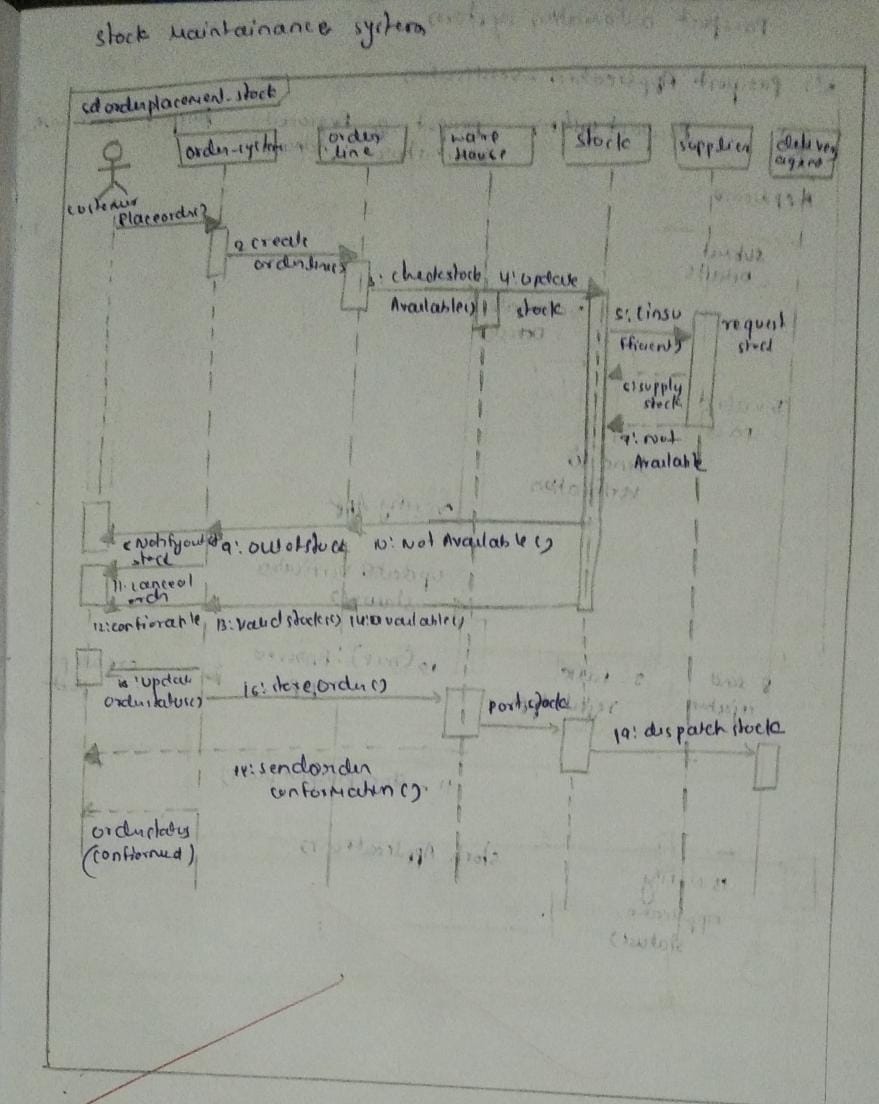 stock Maintainance system
sd orderplacement.stock
order-system
order
line
ware
House
stock
supplier
delivery
agent
customer
Placeorder
2 create
orderlines
3: checkstock
Available()
4: update
stock
5: (insu
fficient)
request
stock
6: supply
stock
7: not
Available
Notifyout of
stock
9: outofstock
10: Not Available()
11: cancel
order
13: valid stock()
14: available()
update
orderstatus()
16: store order()
19: dispatch stock
sendorder
conformation()
orderstatus
(confirmed)